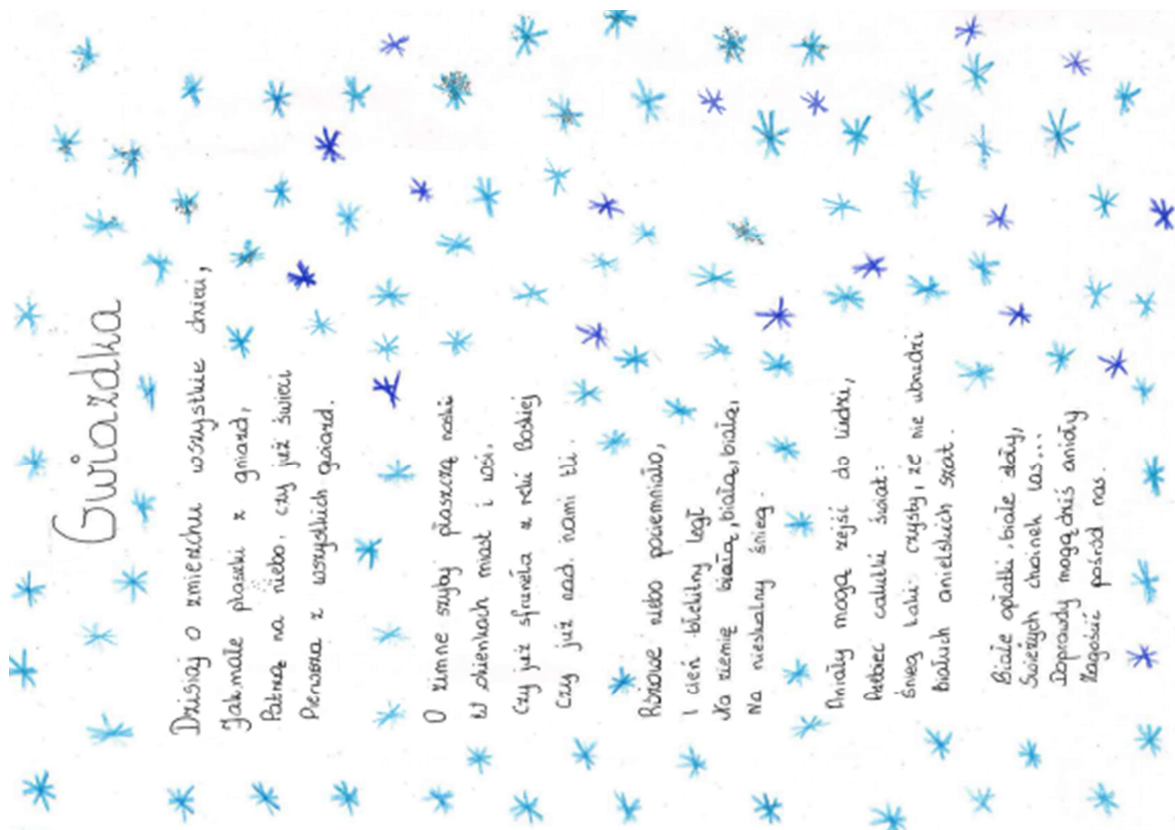 Gwiazdka
Dzisiaj o zmierzchu wszystkie dzieci,
Jak małe ptaszki z gniazd,
Patrzą na niebo, czy już świeci
Pierwsza z wszystkich gwiazd.
O zimne szyby płaszczą noski
W okienkach miast i wsi,
Czy już sfrunęła z ręki Boskiej
Czy już nad nami tli.
Różowe niebo pociemniało,
I cień błękitny legł
Na ziemię białą, białą, białą,
Na nieskalny śnieg.
Anioły mogą zejść do ludzi,
Przebiec calutki świat:
Śnieg taki czysty, że nie ubrudzi
Białych anielskich szat.
Białe opłatki, białe stoły,
Świeżych choinek las...
Doprawdy mogą dziś anioły
Zagościć pośród nas.